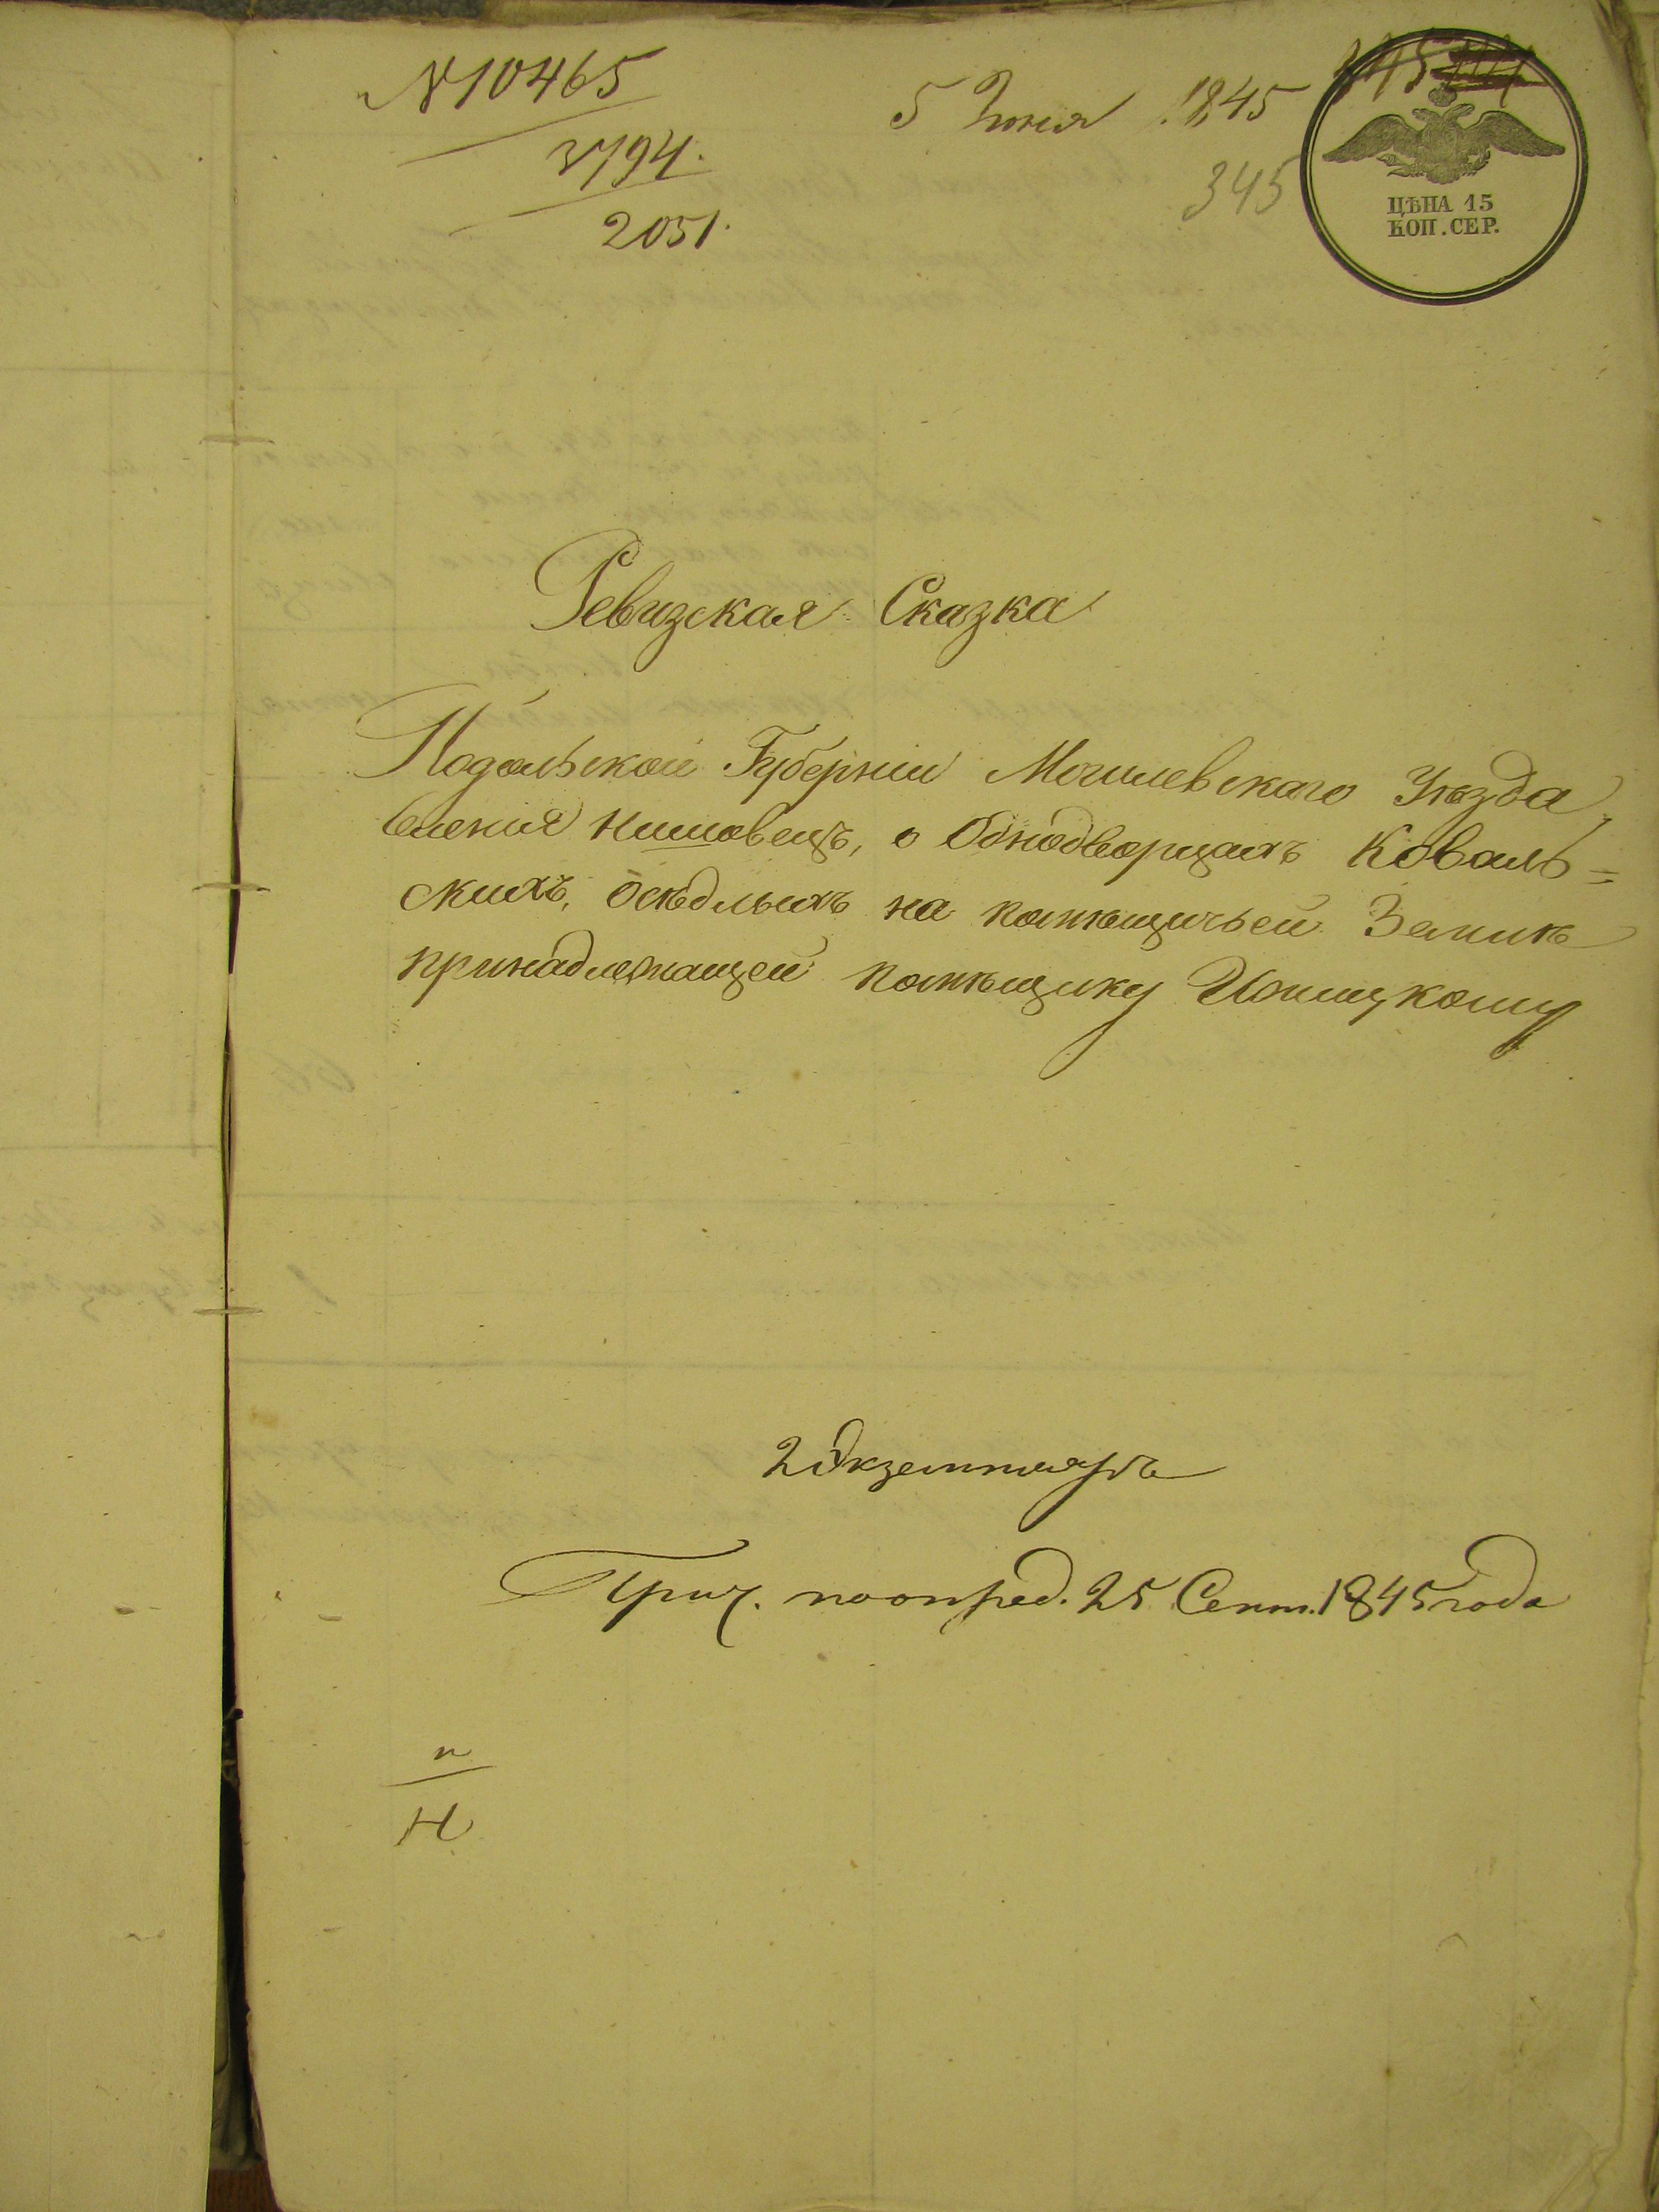 № 10465
3794.
2051.
5 Июня 1845
345
345
ЦѢНА 15
КОП. СЕР.
Ревизская Сказка
Подольской Губерніи Могилевскаго Уѣзда,
Селенія Нишовецъ, о Однодворцахъ Коваль=
скихъ, осѣдлыхъ на помѣщичьей Землѣ
принадлежащей помѣщику
2 Экземпляръ
Прич. по опред. 25 Сент. 1845 года
п
Н